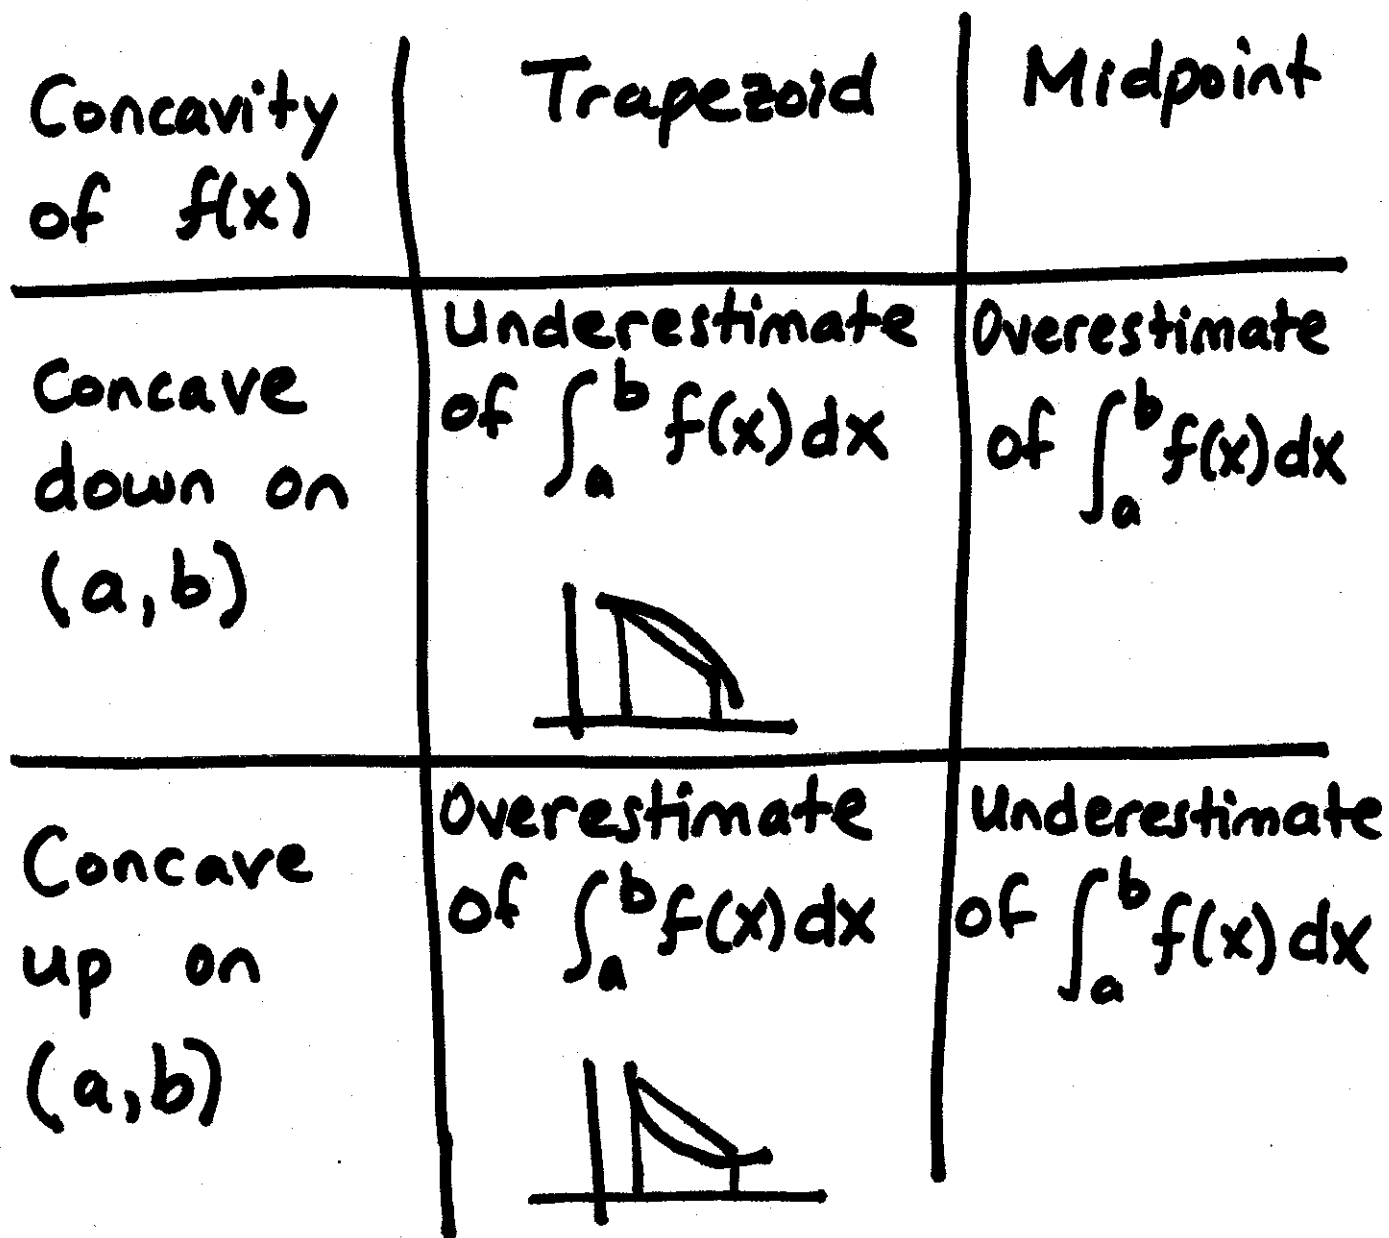 Concavity
of f(x)
Trapezoid
Midpoint
Concave
down on
(a,b)
Underestimate
of ∫_a^b f(x)dx
Overestimate
of ∫_a^b f(x)dx
Concave
up on
(a,b)
Overestimate
of ∫_a^b f(x)dx
Underestimate
of ∫_a^b f(x)dx